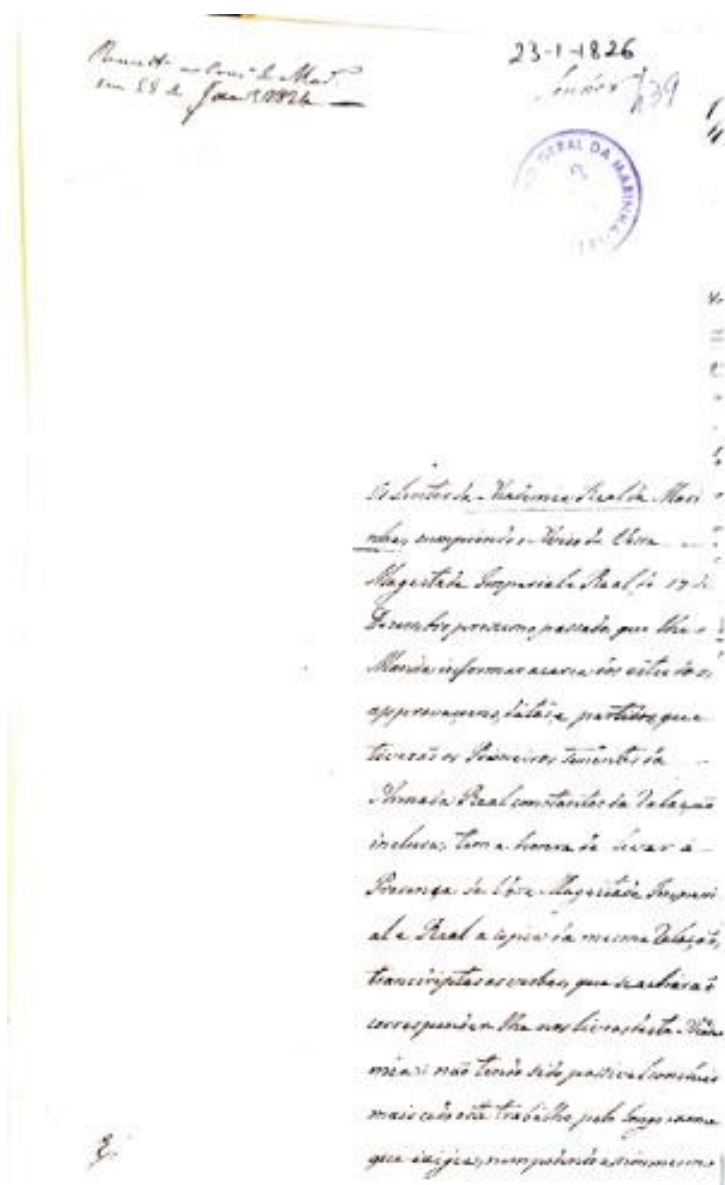 23-1-1826
Senhor
639
GERAL DA MARINHA
Os Lentes da Academia Real da Mari
nha, cumprindo o Aviso de Vossa
Magestade Imperial e Real, de 17 de
Dezembro proximo passado, que lhes
Manda informar acerca dos estudos,
approvaçoens, datas, e partidos, que
tiverão os Primeiros Tenentes da
Armada Real constantes da Relação
inclusa; tem a honra de levar á
Presença de Vossa Magestade Imperi
al e Real a copia da mesma Relação,
transcriptas as verbas, que se acharaõ
corresponder lhe nos livros desta Acade
mia: naõ tendo sido possivel concluir
mais cedo este trabalho pelo longo exame
que exigia, nem podendo assim mesmo